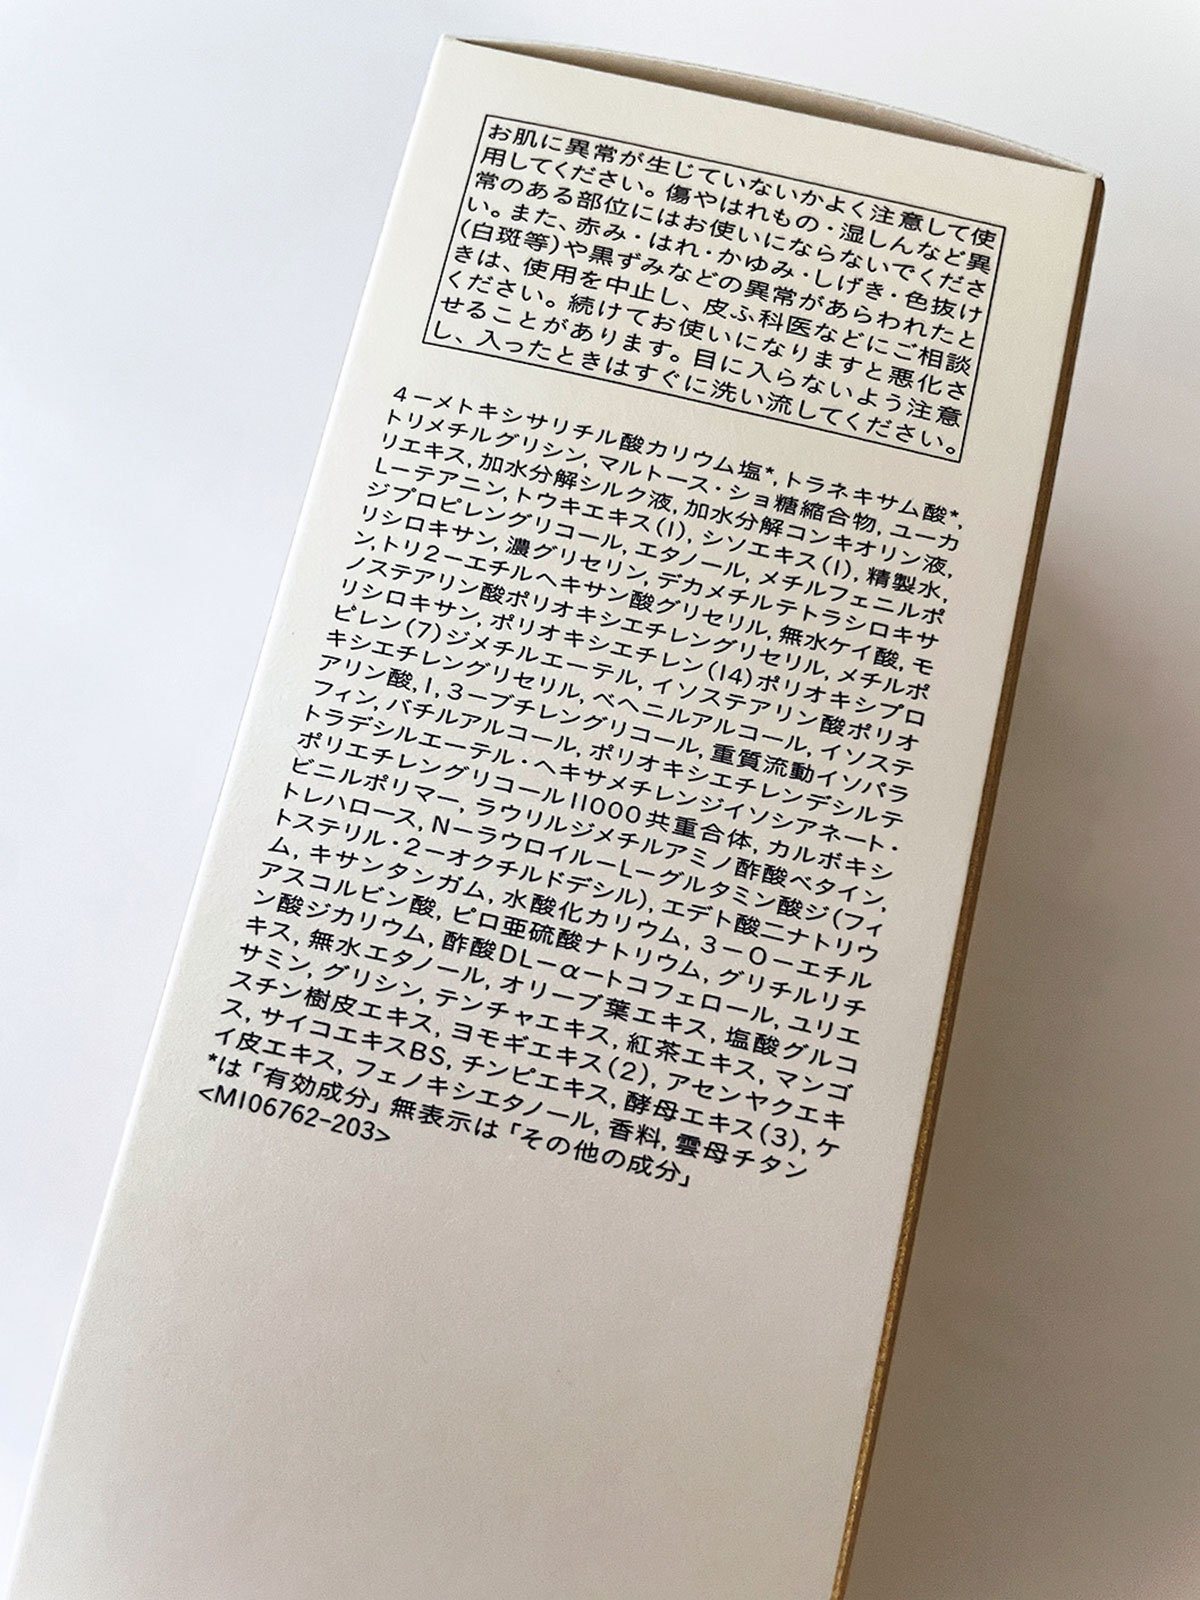 お肌に異常が生じていないかよく注意して使
用してください。傷やはれもの・湿しんなど異
常のある部位にはお使いにならないでくださ
い。また、赤み・はれ・かゆみ・しげき・色抜け
(白斑等)や黒ずみなどの異常があらわれたと
きは、使用を中止し、皮ふ科医などにご相談
ください。続けてお使いになりますと悪化さ
せることがあります。目に入らないよう注意
し、入ったときはすぐに洗い流してください。
4－メトキシサリチル酸カリウム塩*, トラネキサム酸*,
トリメチルグリシン, マルトース・ショ糖縮合物, ユーカ
リエキス, 加水分解シルク液, 加水分解コンキオリン液,
L－テアニン, トウキエキス(1), シソエキス(1), 精製水,
ジプロピレングリコール, エタノール, メチルフェニルポ
リシロキサン, 濃グリセリン, デカメチルテトラシロキサ
ン, トリ2－エチルヘキサン酸グリセリル, 無水ケイ酸, モ
ノステアリン酸ポリオキシエチレングリセリル, メチルポ
リシロキサン, ポリオキシエチレン(14)ポリオキシプロ
ピレン(7)ジメチルエーテル, イソステアリン酸ポリオ
キシエチレングリセリル, ベヘニルアルコール, イソステ
アリン酸, 1, 3－ブチレングリコール, 重質流動イソパラ
フィン, バチルアルコール, ポリオキシエチレンデシルテ
トラデシルエーテル・ヘキサメチレンジイソシアネート・
ポリエチレングリコール11000共重合体, カルボキシ
ビニルポリマー, ラウリルジメチルアミノ酢酸ベタイン,
トレハロース, N－ラウロイル－L－グルタミン酸ジ(フィ
トステリル・2－オクチルドデシル), エデト酸二ナトリウ
ム, キサンタンガム, 水酸化カリウム, 3－O－エチル
アスコルビン酸, ピロ亜硫酸ナトリウム, グリチルリチ
ン酸ジカリウム, 酢酸DL－α－トコフェロール, ユリエ
キス, 無水エタノール, オリーブ葉エキス, 塩酸グルコ
サミン, グリシン, テンチャエキス, 紅茶エキス, マンゴ
スチン樹皮エキス, ヨモギエキス(2), アセンヤクエキ
ス, サイコエキスBS, チンピエキス, 酵母エキス(3), ケ
イ皮エキス, フェノキシエタノール, 香料, 雲母チタン
*は「有効成分」無表示は「その他の成分」
<MI06762-203>